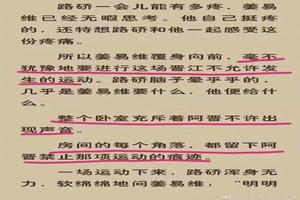 路硚一会儿能有多疼，姜易
维已经无暇思考。他自己挺疼
的，还特想路硚和他一起感受这
份疼痛。
所以姜易维覆身向前，毫不
犹豫地要进行这场晋江不允许发
生的运动。路硚脑子晕乎乎的，
几乎是姜易维要什么，他便给什
么。
整个卧室充斥着阿晋不许出
现声音。
房间的每个角落，都留下阿
晋禁止那项运动的痕迹。
一场运动下来，路硚浑身无
力，软绵绵地问姜易维：“明明